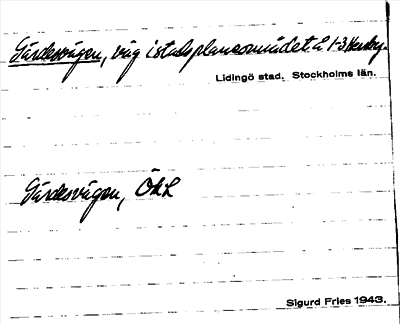 Gärdesvägen, väg i stadsplaneområdet å 1-3 Hersby.
Lidingö stad. Stockholms län.
Gärdesvägen, ÖhL
Sigurd Fries 1943.